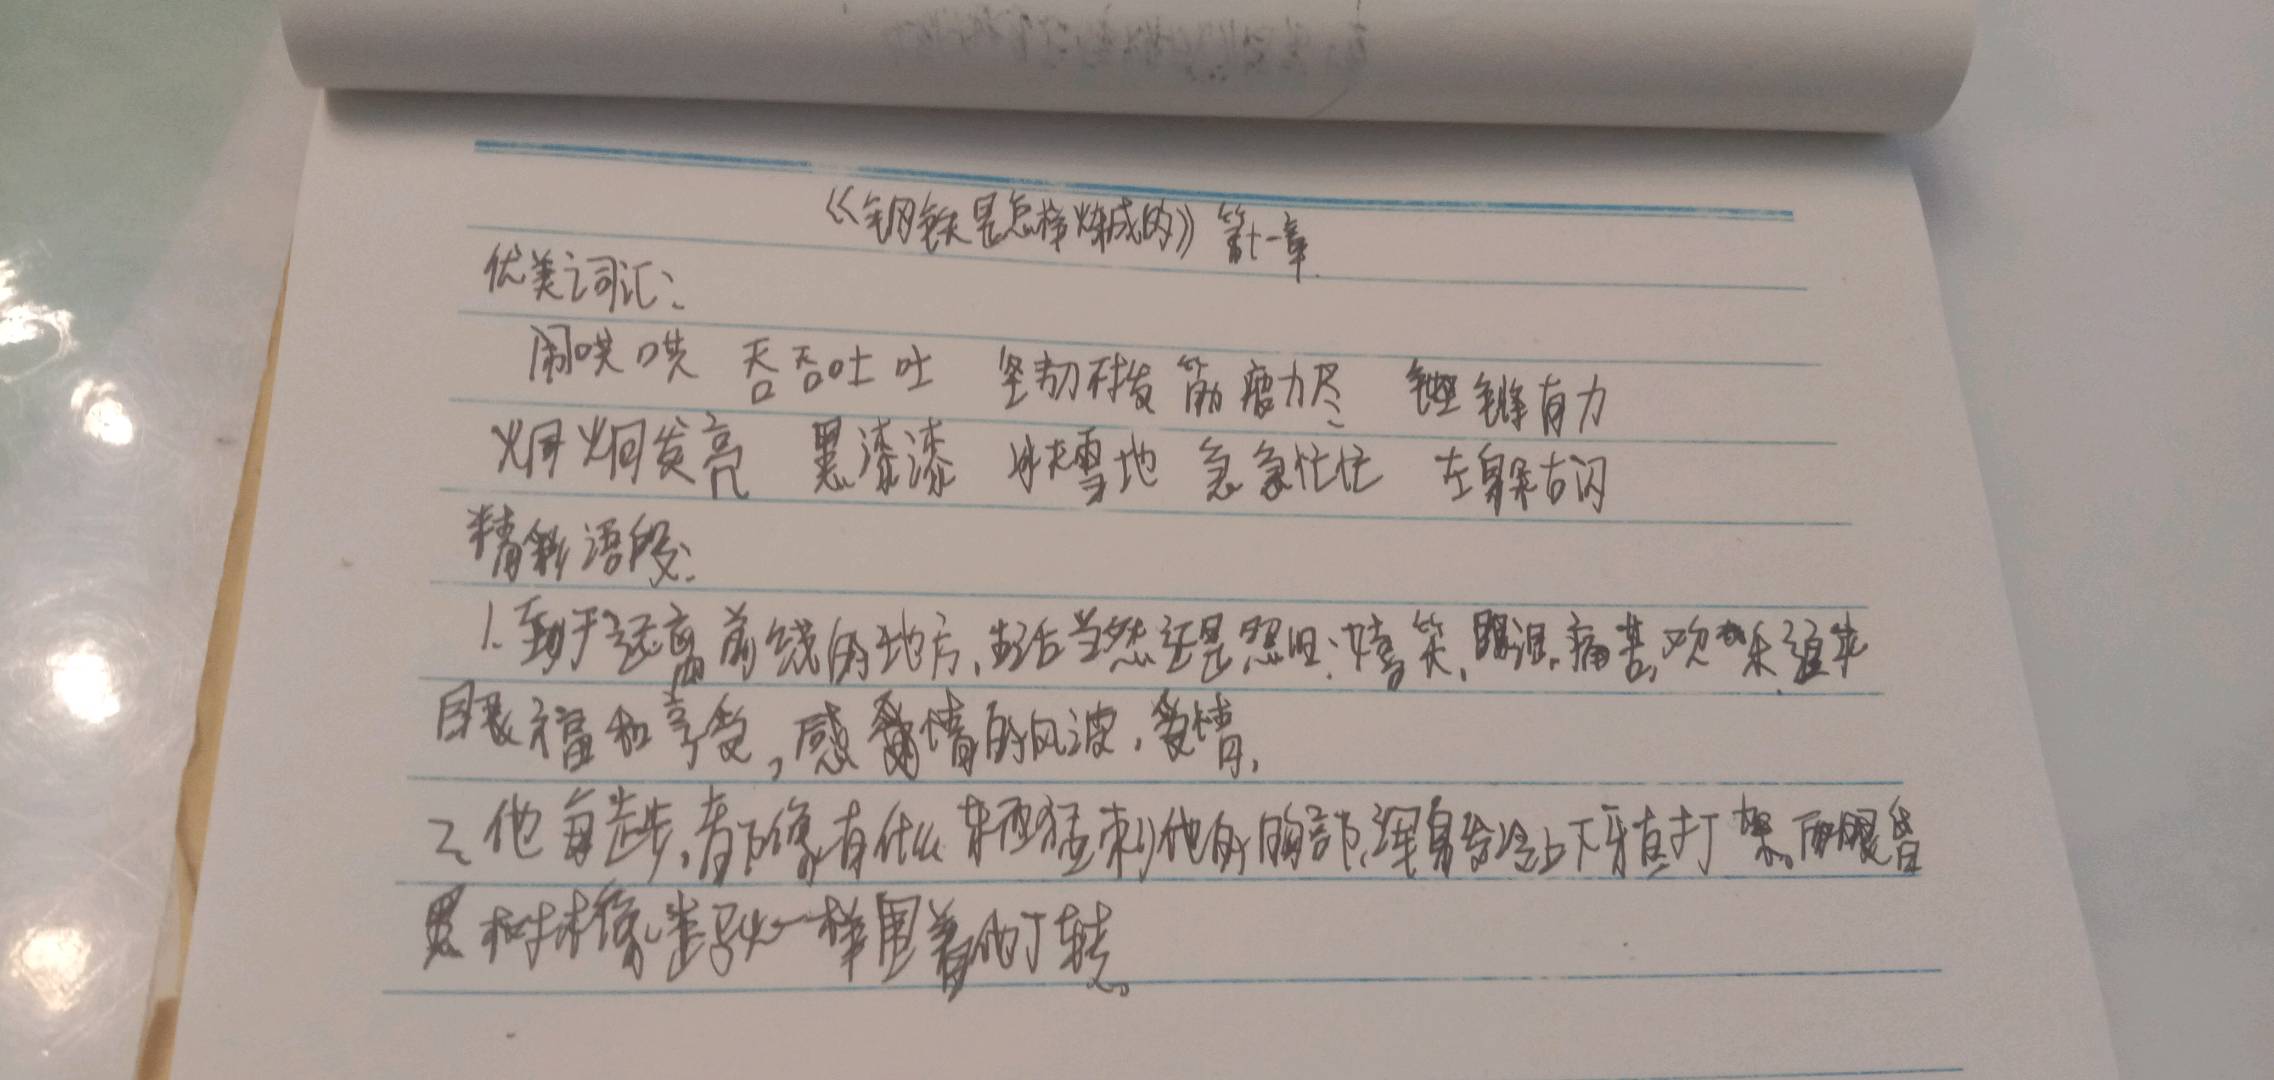 《钢铁是怎样炼成的》第十一章
优美词汇:
闹哄哄 吞吞吐吐 坚韧不拔 筋疲力尽 铿锵有力
炯炯发亮 黑漆漆 冰天雪地 急急忙忙 左躲右闪
精彩语段:
1.至于远离前线的地方,生活当然还是照旧:嬉笑,眼泪,痛苦,欢乐,追求
眼福和享受,感情的风波,爱情,
2.他每走步,都像有什么东西猛刺他的胸部,浑身发冷上下牙直打架。两眼昏
黑树木像走马一样围着他打转。